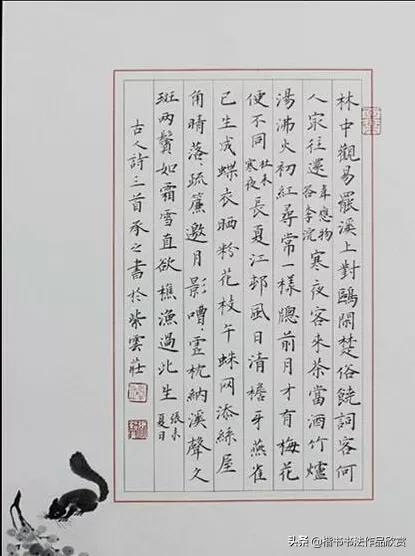 林中觀易罷溪上對鷗閑楚俗饒詞客何
人㝡往還韋應物答李浣寒夜客來茶當酒竹爐
湯沸火初紅尋常一樣牕前月才有梅花
便不同杜耒寒夜長夏江邨風日清檐牙燕雀
已生成蝶衣晒粉花枝午蛛网添絲屋
角晴落〻疏簾邀月影嘈〻虛枕納溪聲久
斑兩鬢如霜雪直欲樵漁過此生張耒夏日
古人詩三首承之書於紫雲莊
头条 @楷书书法作品欣赏